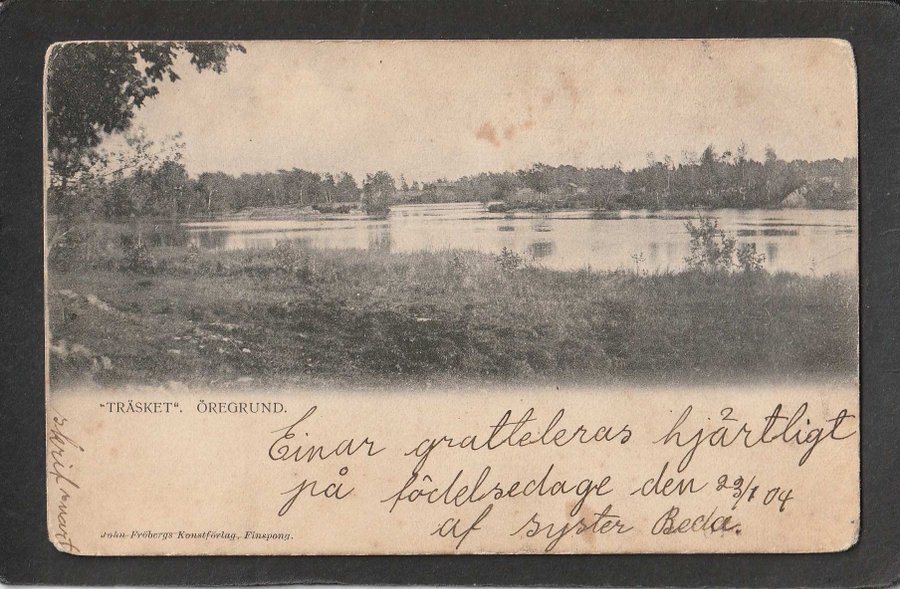 "TRÄSKET". ÖREGRUND.
Einar gratteleras hjärtligt
på födelsedage den 23/1 04
af syster Beda.
skrif snart
John Fröbergs Konstförlag, Finspong.